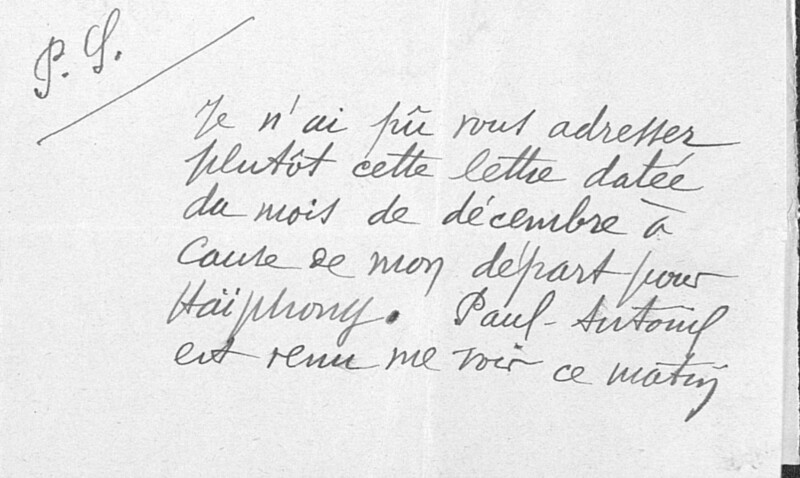 P. S.
Je n'ai pû vous adresser
plutôt cette lettre datée
du mois de décembre à
cause de mon départ pour
Haïphong. Paul-Antoine
est venu me voir ce matin